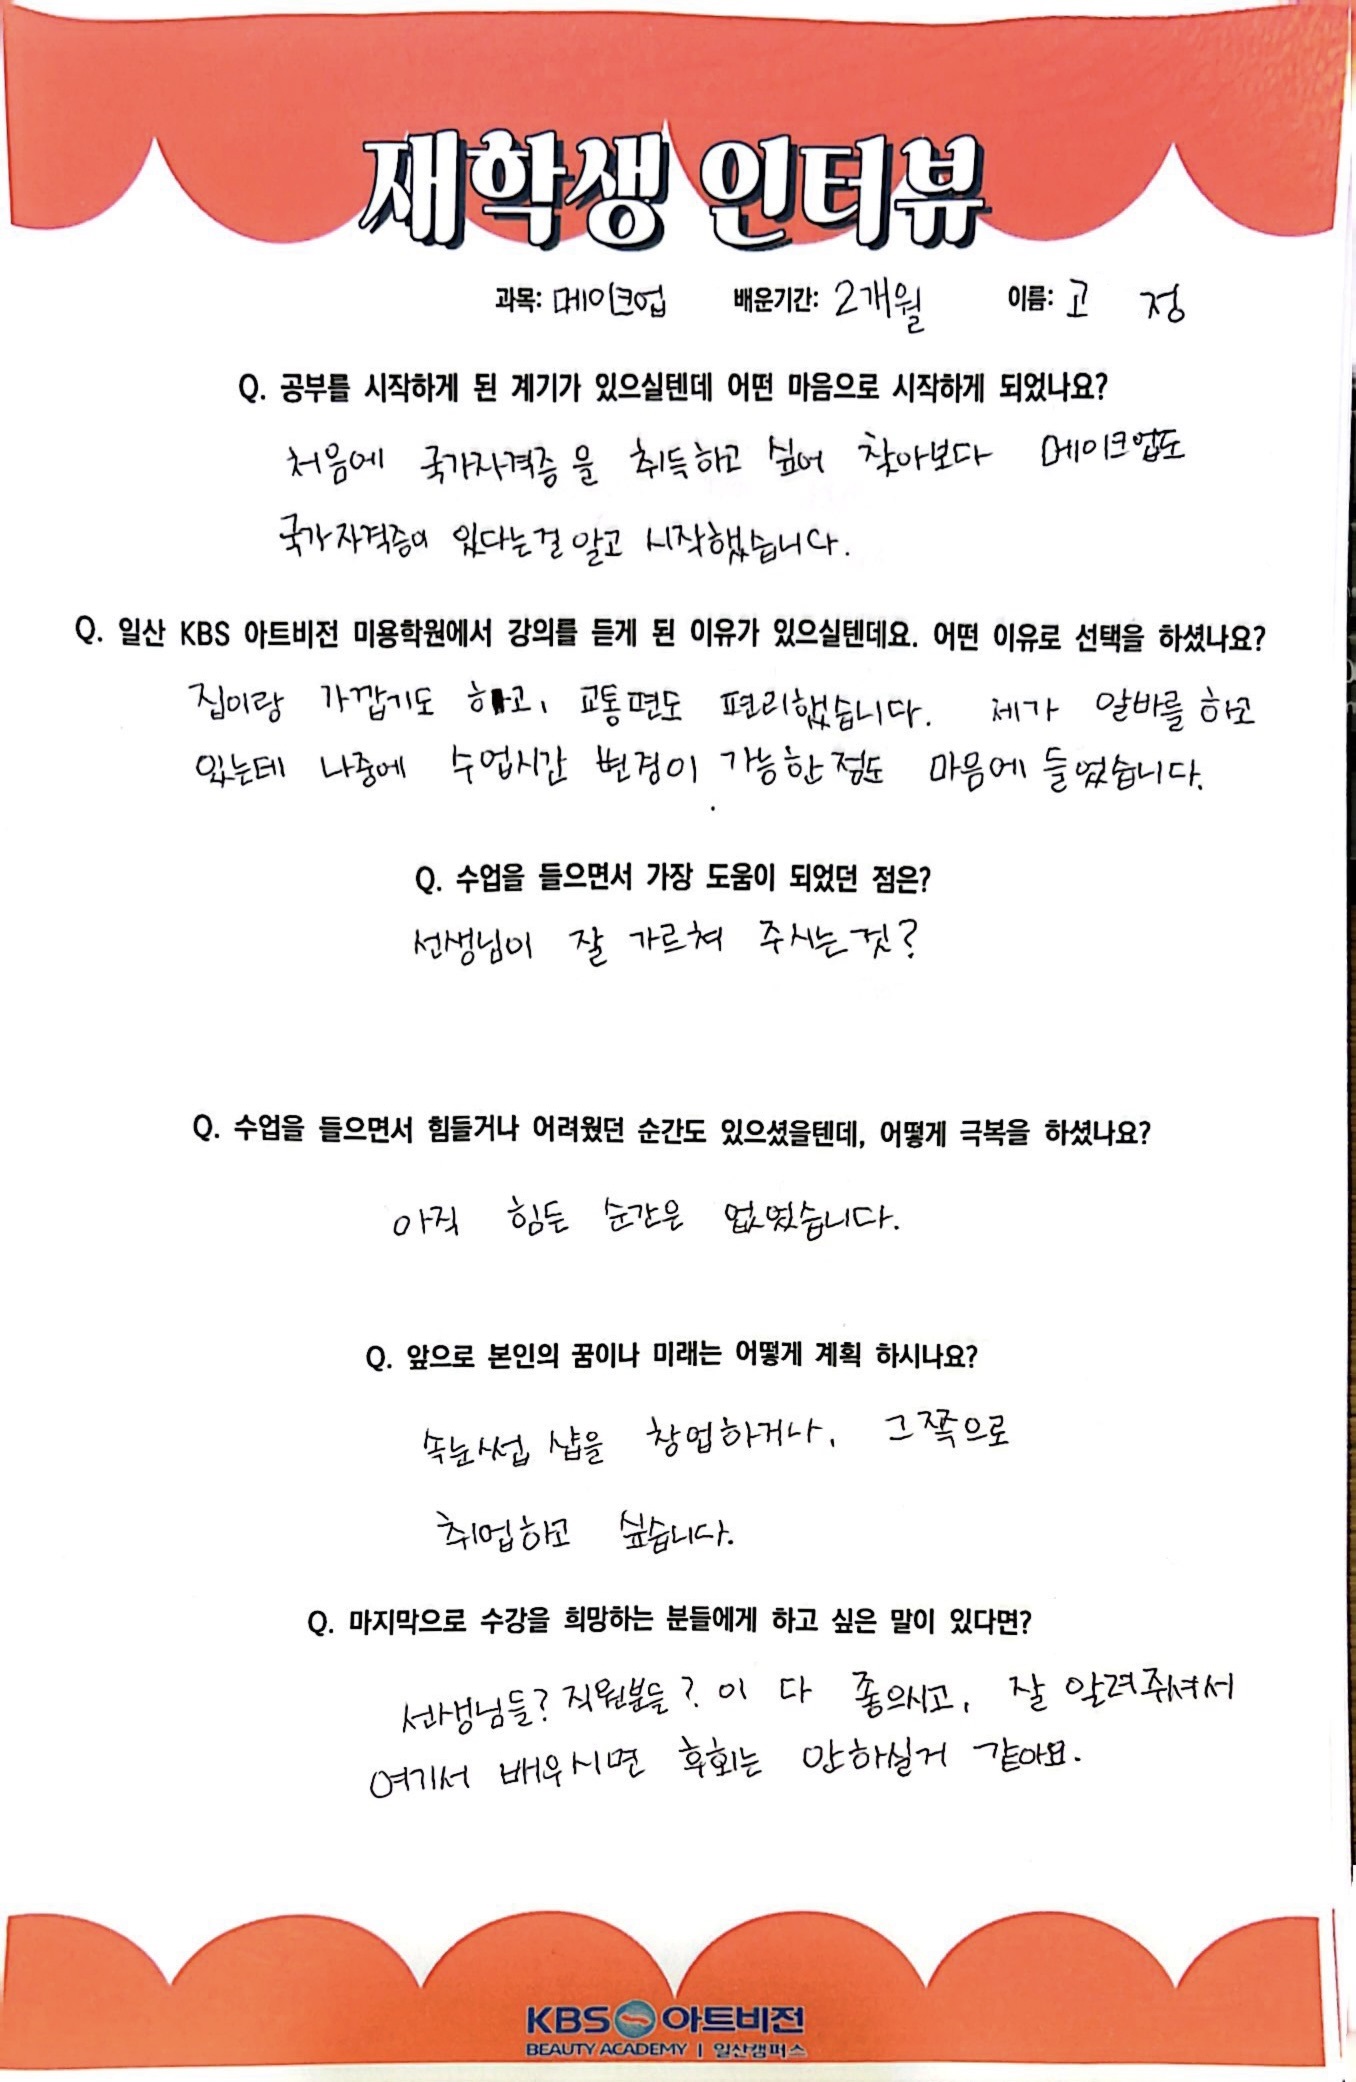 재학생 인터뷰
과목: 메이크업 배운기간: 2개월 이름: 고 정
Q. 공부를 시작하게 된 계기가 있으실텐데 어떤 마음으로 시작하게 되었나요?
처음에 국가자격증을 취득하고 싶어 찾아보다 메이크업도
국가자격증이 있다는걸 알고 시작했습니다.
Q. 일산 KBS 아트비전 미용학원에서 강의를 듣게 된 이유가 있으실텐데요. 어떤 이유로 선택을 하셨나요?
집이랑 가깝기도 하고, 교통편도 편리했습니다. 제가 알바를 하고
있는데 나중에 수업시간 변경이 가능한점도 마음에 들었습니다.
Q. 수업을 들으면서 가장 도움이 되었던 점은?
선생님이 잘 가르쳐 주시는것?
Q. 수업을 들으면서 힘들거나 어려웠던 순간도 있으셨을텐데, 어떻게 극복을 하셨나요?
아직 힘든 순간은 없었습니다.
Q. 앞으로 본인의 꿈이나 미래는 어떻게 계획 하시나요?
속눈썹 샵을 창업하거나, 그쪽으로
취업하고 싶습니다.
Q. 마지막으로 수강을 희망하는 분들에게 하고 싶은 말이 있다면?
선생님들? 직원분들? 이 다 좋으시고, 잘 알려주셔서
여기서 배우시면 후회는 안하실거 같아요.
KBS 아트비전
BEAUTY ACADEMY | 일산캠퍼스